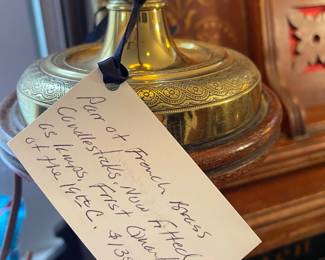 Pair of French Brass
Candlesticks, Now fitted
as lamps, First Quar
of the 19th C.
$135